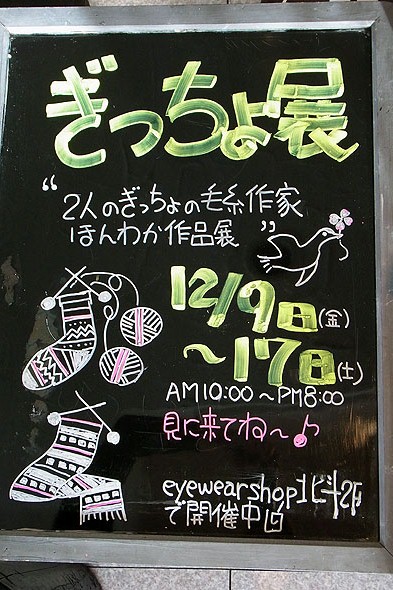 ぎっちょ展
“2人のぎっちょの毛糸作家
ほんわか作品展”
12/9日(金)
～17日(土)
AM10:00～PM8:00
見に来てね～♪
eyewearshop北斗2F
で開催中